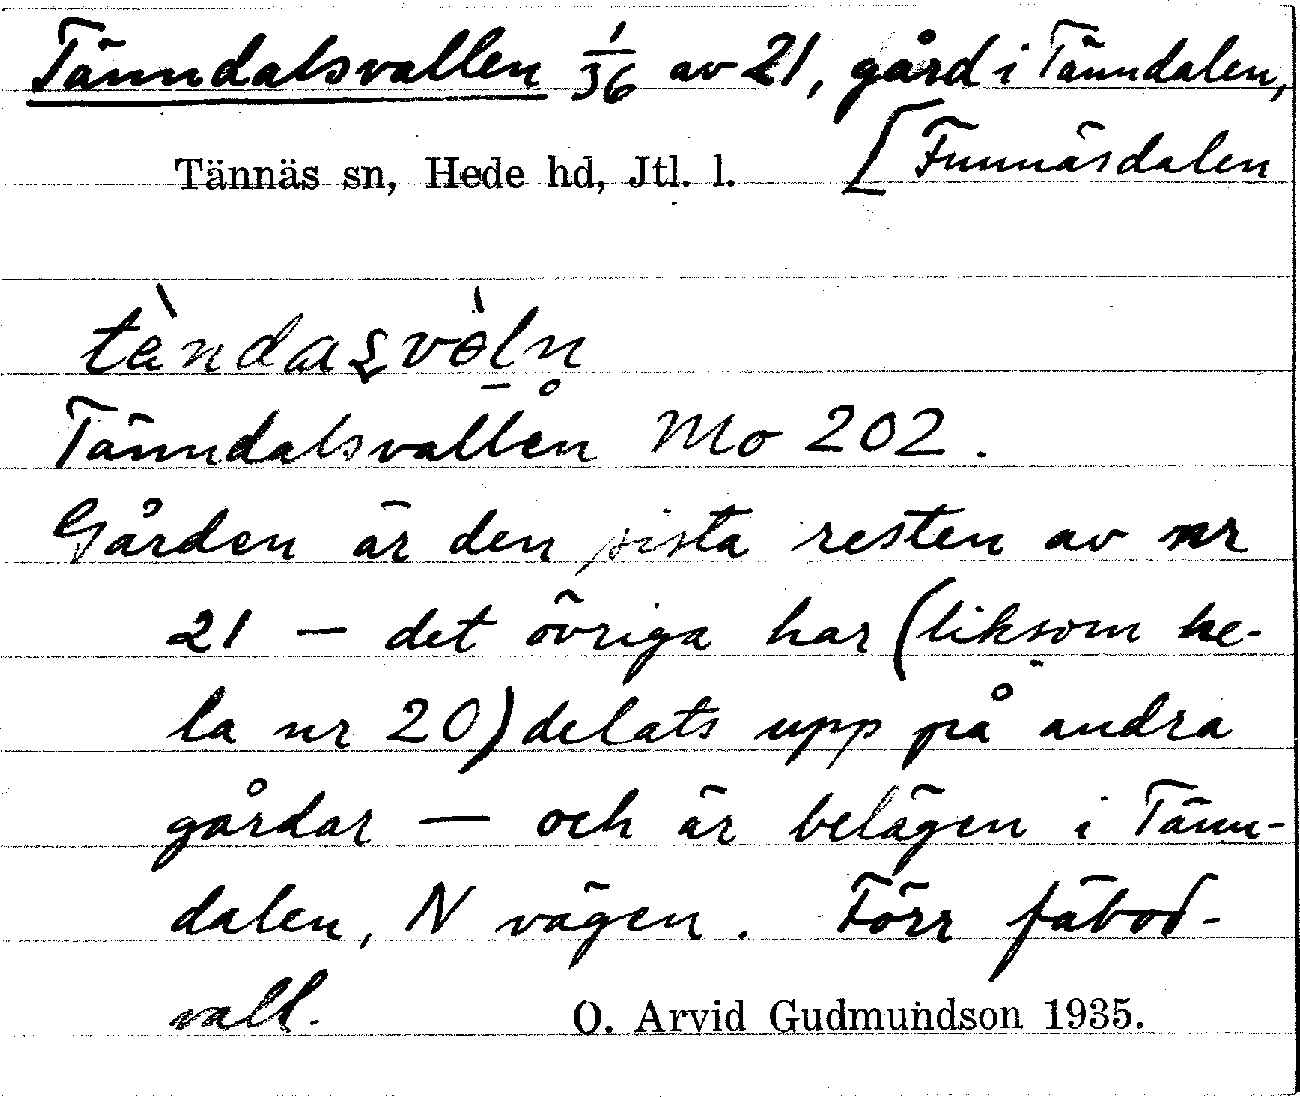 Tänndalsvallen 1/36 av 21, gård i Tänndalen,
Tännäs sn, Hede hd, Jtl. l. [Funnäsdalen
Tänndalsvallen Mo 202.
Gården är den sista resten av nr
21 — det övriga har (liksom he-
la nr 20) delats upp på andra
gårdar — och är belägen i Tänn-
dalen, N vägen. Förr fäbod-
vall. O. Arvid Gudmundson 1935.